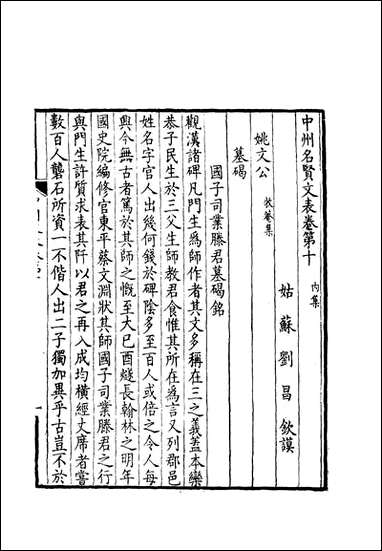 中州名賢文表卷第十　內集
姑蘇劉昌欽謨
姚文公　牧菴集
墓碣
國子司業滕君墓碣銘
觀漢諸碑凡門生爲師作者其文多稱在三之義蓋本欒
恭子民生於三父生師教君食惟其所在爲言又列郡邑
姓名字官人出幾何錢於碑陰多至百人或倍之令人每
興今無古者篤於其師之慨至大己酉燧長翰林之明年
國史院編修官東平蔡文淵狀其師國子司業滕君之行
與門生許質求表其阡以君之再入成均橫經丈席者嘗
數百人礱石所資一不偕人出二子獨加異乎古豈不於